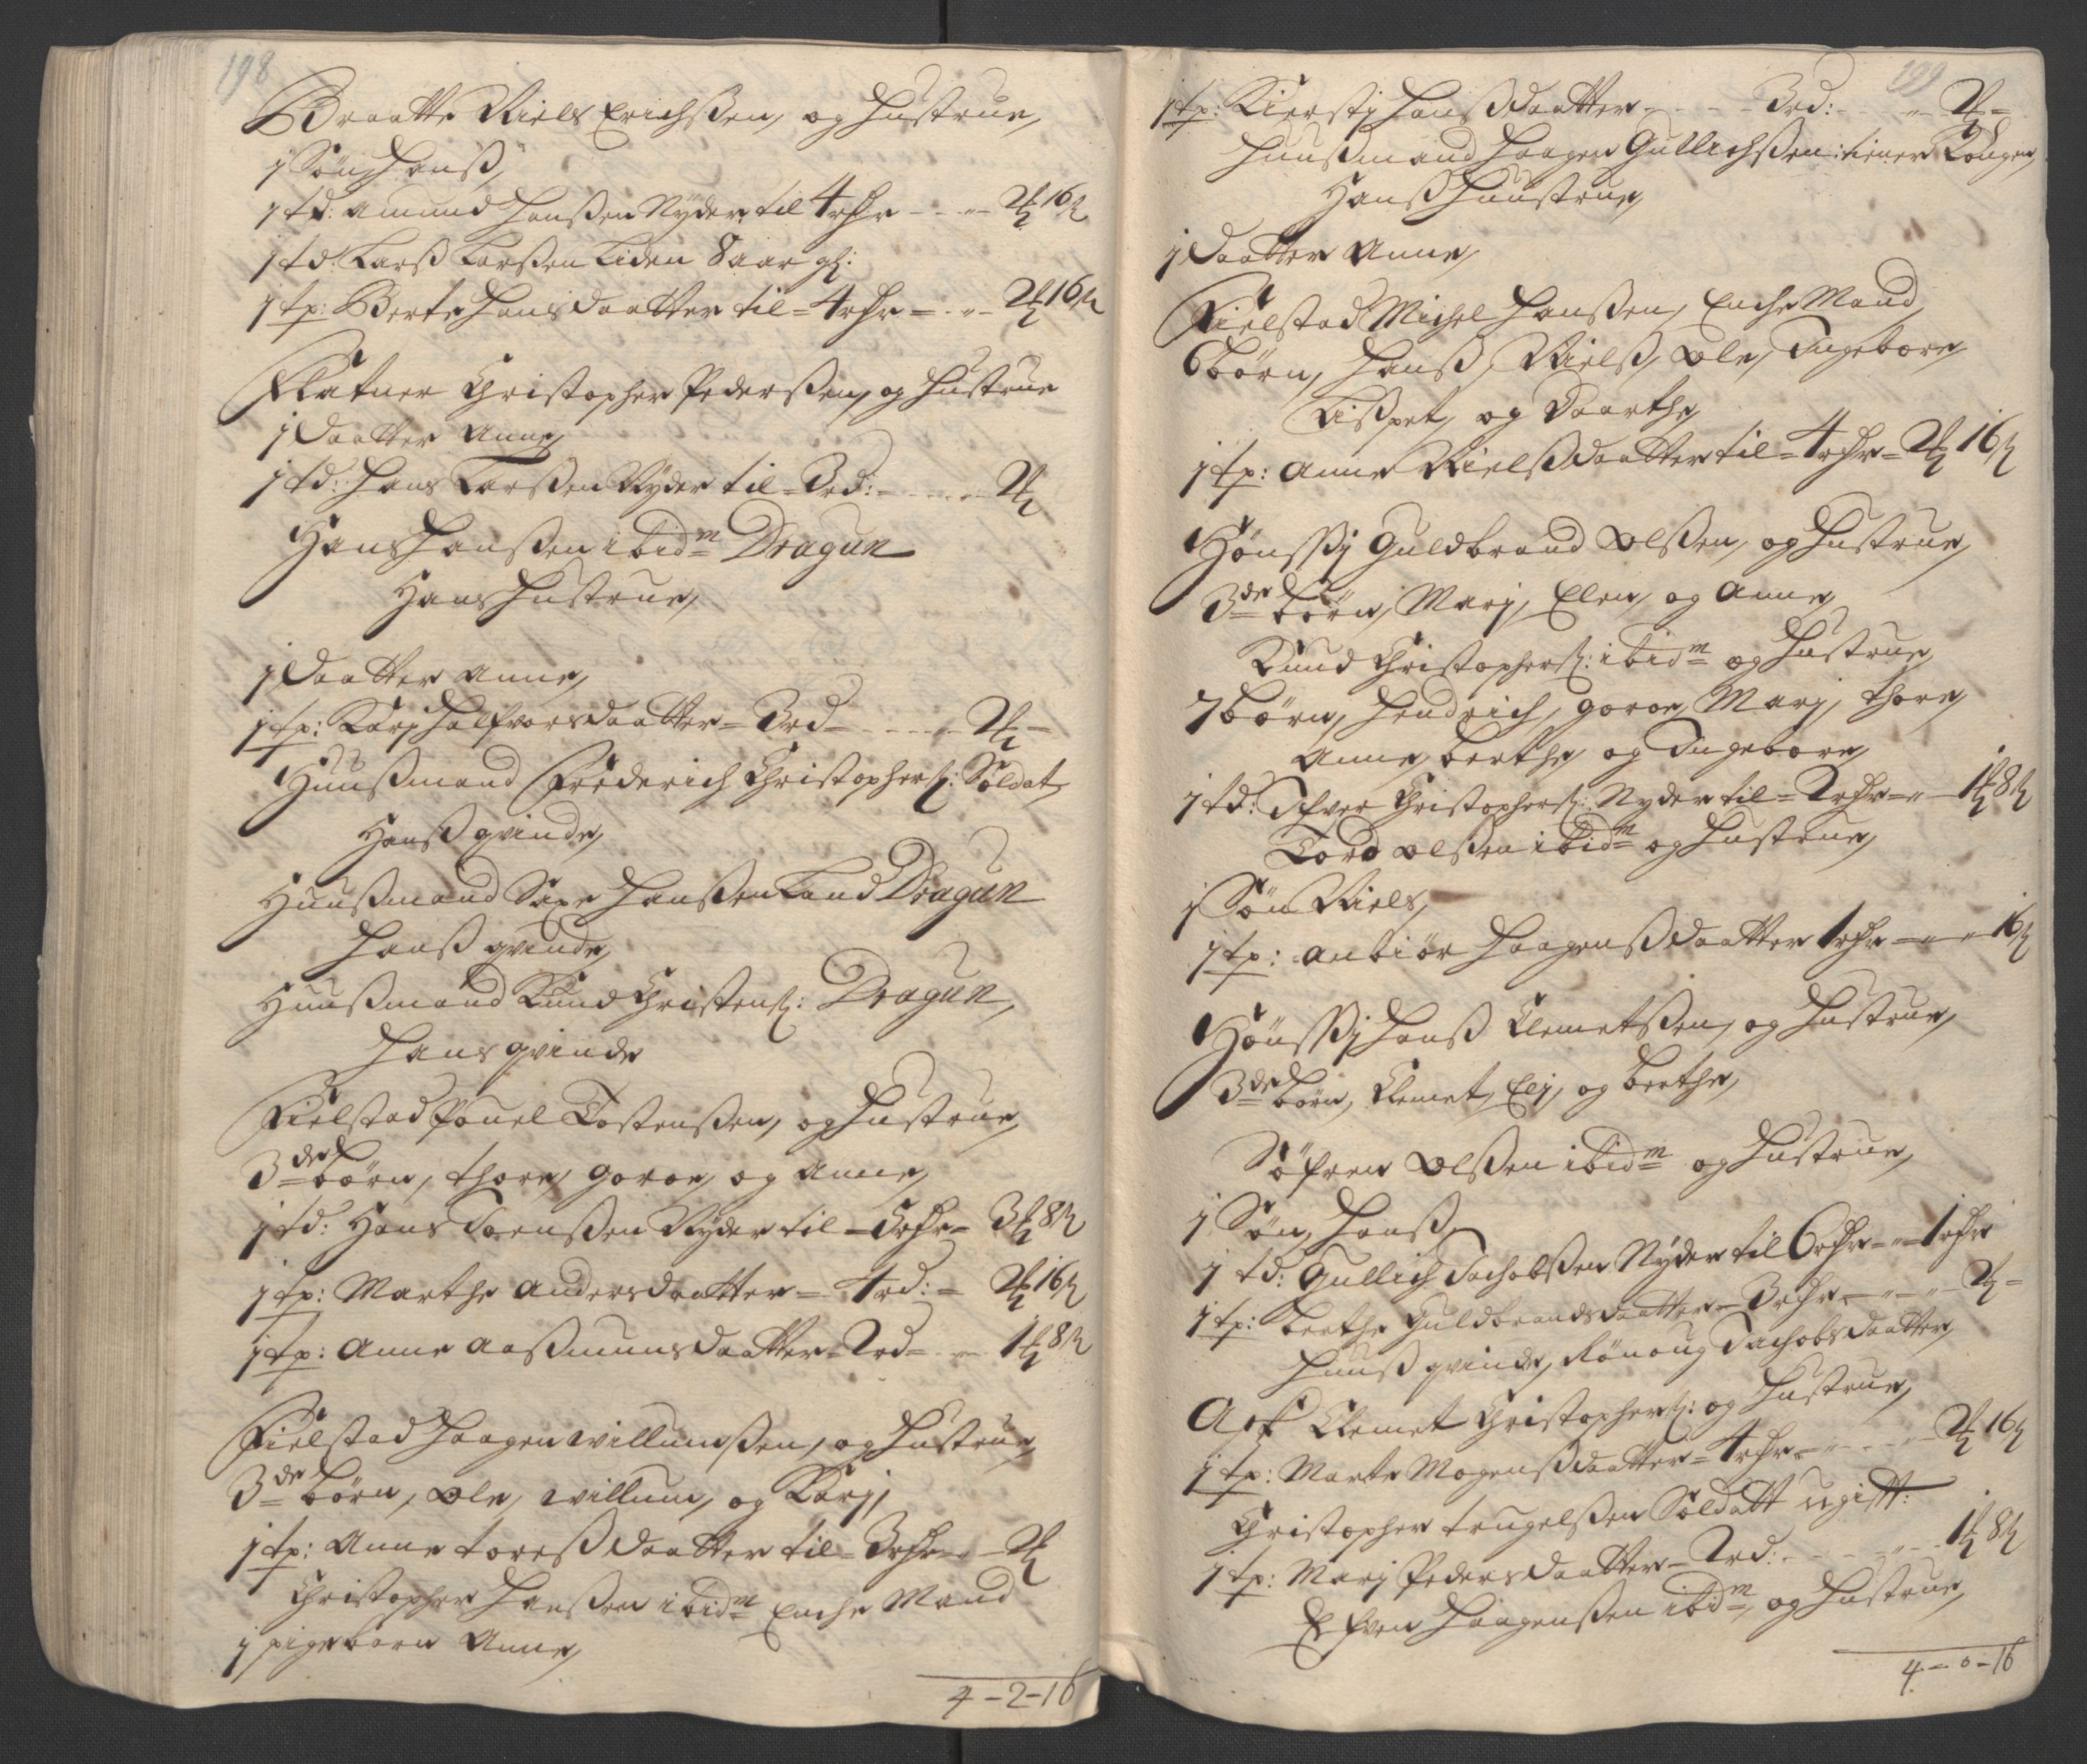 198
Braatte Niels Erichßen, og Hustrue,
1 Søn Hanß,
1 td: Amund Hanßen Nyder til 4 rdr - - „ - 2 ꝉ 16 ß
1 td: Larß Larßen Liden 8 aar gl:
1 tp: Berte Hansdaatter til = 4 rdr = - „ - 2 ꝉ 16 ß
Flatner Christopher Pederßen, og Hustrue
1 Daatter Anne,
1 td: Hans Larßen Nyder til = 3 rd: - - - „ - 2 ꝉ
Hans Hanßen ibidm Dragun
Hans Hustrue,
1 Daatter Anne,
1 tp: Karj Halfvorsdaatter = 3 rd - - - - „ - 2 ꝉ -
Huußmand Frederich Christophers: Soldat
Hanß qvinde,
Huußmand Saxe Hanßen Land Dragun
Hanß qvinde,
Huußmand Knud Christens: Dragun,
Hans qvinde
Fielstad Pouel Tostenßen, og Hustrue,
3de børn, Thore, Goroe, og Anne,
1 td: Hans Joenßen Nyder til = 5 rdr = 3 ꝉ 8 ß
1 tp: Marthe Andersdaatter = 4 rd: = 2 ꝉ 16 ß
1 tp: Anne Aaßmunsdaatter = 2 rd = - „ - 1 ꝉ 8 ß
Fielstad Haagen Willumßen, og Hustrue
3de børn, Ole, Willum, og Karj,
1 tp: Anne Toreßdaatter til = 3 rdr - „ - 2 ꝉ
Christopher Hanßen ibidm Enche Mand
1 pigebarn Anne,
4 - 2 - 16
199
1 tp: Kierstj Hanßdaatter - - - - 3 rd: - - „ - 2 ꝉ =
Huußmand Haagen Gullichßen: tiener Kongen,
Hanß Huustrue,
1 Daatter Anne,
Fielstad Michel Hanßen, Enche Mand,
6 børn, Hanß, Nielß, Ole, Ingeborre,
Lißpet, og Daarthe,
1 tp: Anne Nielßdaatter til = 4 rdr = 2 ꝉ 16 ß
Hønßj Guldbrand Olßen, og Hustrue,
3de børn, Marj, Elen, og Anne,
Knud Christophers: ibidm og Hustrue,
7 børn, Hendrich, Goroe, Marj, Thore,
Anne, berthe, og Ingeborre,
1 td: Ifver Christophers: Nyder til = 2 rdr = „ - 1 ꝉ 8 ß
Tord Olßen ibidm og Hustrue,
1 Søn Niels,
1 tp: Anbiør Haagenßdaatter 1 rdr - „ - „ 16 ß
Hønßj Hanß Clemetßen, og Hustrue,
3de børn, Clemet, Elj, og berthe,
Søfren Olßen ibidm og Hustrue,
1 Søn, Hanß,
1 td: Gullich Jachobßen Nyder til 6 rdr = „ = 1 rdr
1 tp: berthe Guldbrandsdaatter = 3 rdr - „ - „ - 2 ꝉ =
Huuß qvinde, Rønoug Jachobsdaatter,
Ask Clemet Christophers: og Hustrue,
1 tp: Marte Mogenßdaatter = 4 rdr = „ - - „ - 2 ꝉ 16 ß
Christopher Trugelßen Soldatt ugift:
1 tp: Marj Pedersdaatter = 2 rd: - - - „ - 1 ꝉ 8 ß
Efven Haagenßen ibidm, og Hustrue,
4 - 0 - 16